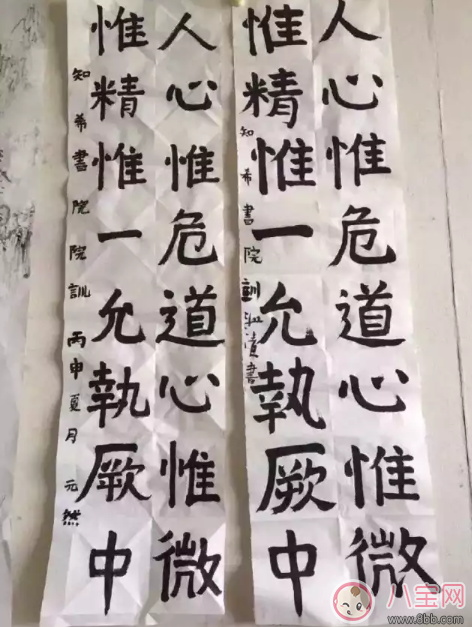 人心惟危道心惟微
惟精惟一允執厥中
知希書院訓 書
人心惟危道心惟微
惟精惟一允執厥中
知希書院院訓 丙申夏月 元然
八宝网
www.8bb.com